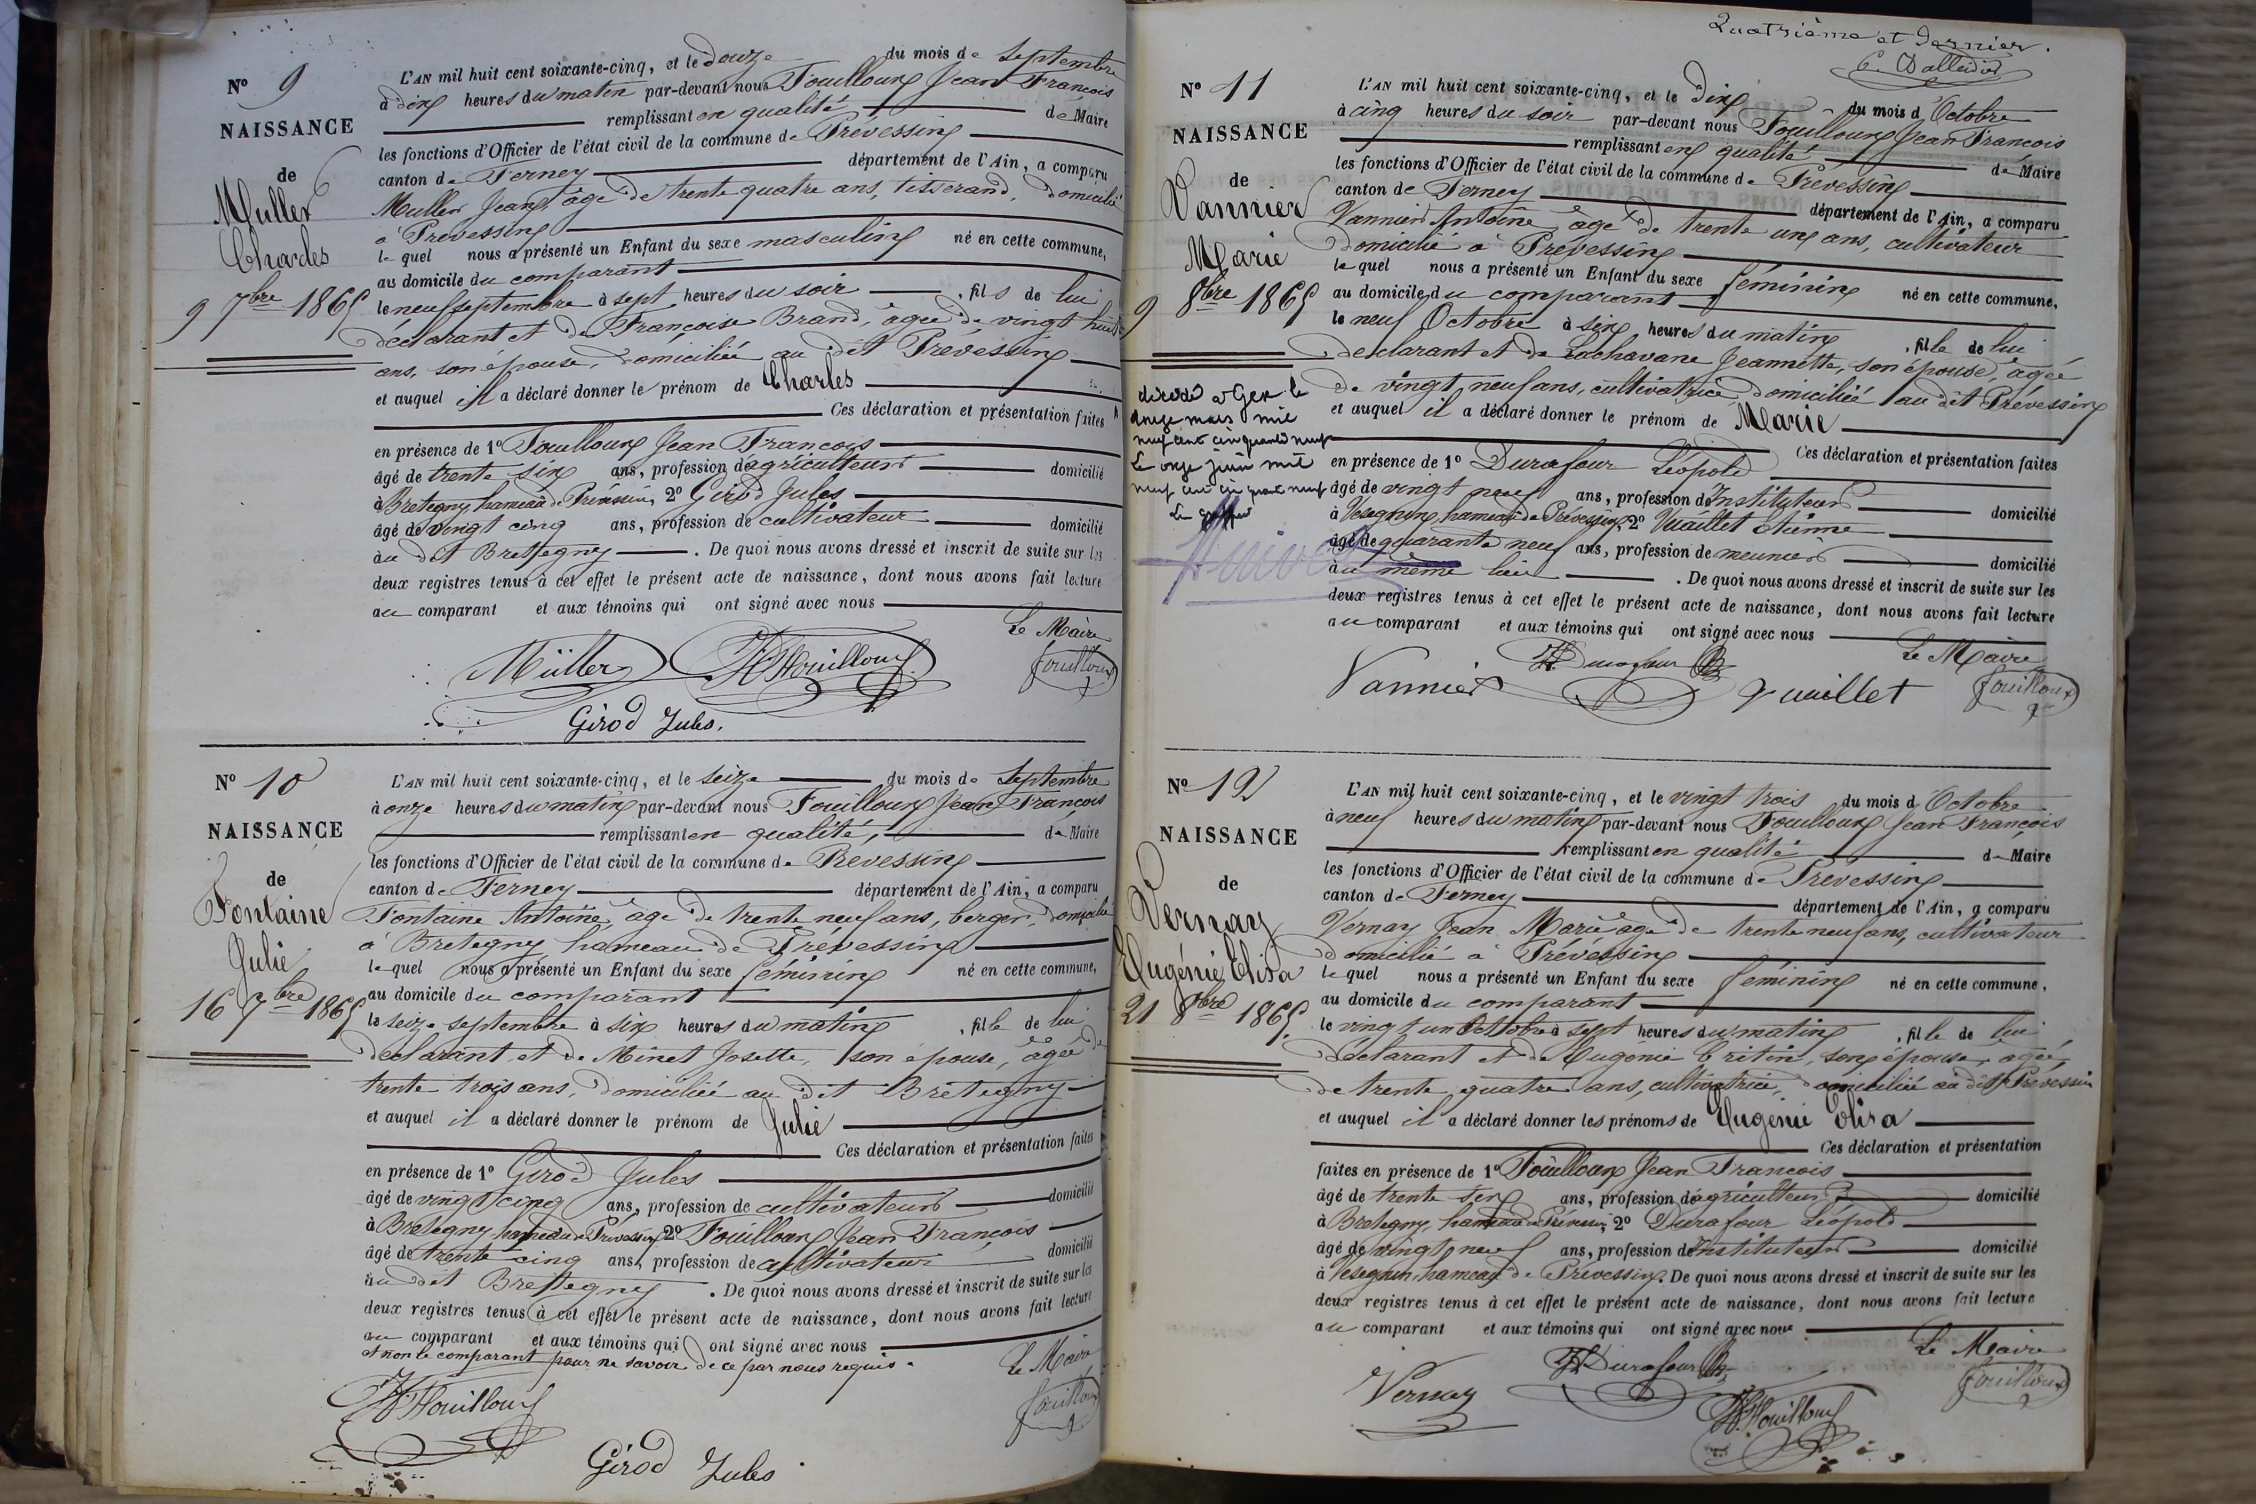 N° 9
NAISSANCE
de
Muller
Charles
9 7bre 1865
L'AN mil huit cent soixante-cinq, et le douze du mois de Septembre
à dix heures du matin par-devant nous Fouilloux Jean François
remplissant en qualité de Maire
les fonctions d'Officier de l'état civil de la commune de Prévessin
canton de Ferney département de l'Ain, a comparu
Muller Jean, âgé de trente quatre ans, tisserand, domicilié
à Prévessin
lequel nous a présenté un Enfant du sexe masculin né en cette commune,
au domicile du comparant
le neuf septembre à sept heures du soir, fils de lui
déclarant et de Françoise Brand, âgée de vingt huit
ans, son épouse, domiciliée au dit Prévessin
et auquel il a déclaré donner le prénom de Charles
Ces déclaration et présentation faites
en présence de 1° Fouilloux Jean François
âgé de trente six ans, profession d'agriculteur domicilié
à Bretegny hameau de Prévessin, 2° Girod Jules
âgé de vingt cinq ans, profession de cultivateur domicilié
au dit Brettegny. De quoi nous avons dressé et inscrit de suite sur les
deux registres tenus à cet effet le présent acte de naissance, dont nous avons fait lecture
au comparant et aux témoins qui ont signé avec nous
Le Maire
Müller Fouilloux Fouilloux
Girod Jules.
N° 10
NAISSANCE
de
Fontaine
Julie
16 7bre 1865
L'AN mil huit cent soixante-cinq, et le seize du mois de Septembre
à onze heures du matin par-devant nous Fouilloux Jean François
remplissant en qualité, de Maire
les fonctions d'Officier de l'état civil de la commune de Prévessin
canton de Ferney département de l'Ain, a comparu
Fontaine Antoine âgé de trente neuf ans, berger, domicilié
à Bretegny hameau de Prévessin
lequel nous a présenté un Enfant du sexe féminin né en cette commune,
au domicile du comparant
le seize septembre à six heures du matin, fille de lui
déclarant, et de Minet Josette, son épouse, âgée de
trente trois ans, domiciliée au dit Brétegny
et auquel il a déclaré donner le prénom de Julie
Ces déclaration et présentation faites
en présence de 1° Girod Jules
âgé de vingt cinq ans, profession de cultivateur domicilié
à Bretegny hameau de Prévessin, 2° Fouilloux Jean François
âgé de trente cinq ans, profession de cultivateur domicilié
au dit Brettegny. De quoi nous avons dressé et inscrit de suite sur les
deux registres tenus à cet effet le présent acte de naissance, dont nous avons fait lecture
au comparant et aux témoins qui ont signé avec nous
et non le comparant pour ne savoir de ce par nous requis.
Le Maire
Fouilloux Fouilloux
Girod Jules
Quatrième et dernier.
N° 11
NAISSANCE
de
Vannier
Marie
9 8bre 1865
décédé à Gex le
onze mars mil
neuf cent cinquante neuf
Le onze juin mil
neuf cent cinquante neuf
Le greffier
L'AN mil huit cent soixante-cinq, et le dix du mois d'Octobre
à cinq heures du soir par-devant nous Fouilloux Jean François
remplissant en qualité de Maire
les fonctions d'Officier de l'état civil de la commune de Prévessin
canton de Ferney département de l'Ain, a comparu
Vannier Antoine, âgé de trente un ans, cultivateur
domicilié à Prévessin
lequel nous a présenté un Enfant du sexe féminin né en cette commune,
au domicile du comparant
le neuf Octobre à six heures du matin, fille de lui
déclarant et de Lachavane Jeannette, son épouse, âgée
de vingt neuf ans, cultivatrice, domiciliée au dit Prévessin
et auquel il a déclaré donner le prénom de Marie
Ces déclaration et présentation faites
en présence de 1° Durafour Léopold
âgé de vingt neuf ans, profession d'Instituteur domicilié
à Vesegnin, hameau de Prévessin, 2° Vuaillet Etienne
âgé de quarante neuf ans, profession de meunier domicilié
au même lieu. De quoi nous avons dressé et inscrit de suite sur les
deux registres tenus à cet effet le présent acte de naissance, dont nous avons fait lecture
au comparant et aux témoins qui ont signé avec nous
Le Maire
Vannier Durafour Vuaillet Fouilloux
N° 12
NAISSANCE
de
Vernay
Eugénie Elisa
21 8bre 1865.
L'AN mil huit cent soixante-cinq, et le vingt trois du mois d'Octobre
à neuf heures du matin par-devant nous Fouilloux Jean François
remplissant en qualité de Maire
les fonctions d'Officier de l'état civil de la commune de Prévessin
canton de Ferney département de l'Ain, a comparu
Vernay Jean Marie âgé de trente neuf ans, cultivateur
domicilié à Prévessin
lequel nous a présenté un Enfant du sexe féminin né en cette commune,
au domicile du comparant
le vingt un Octobre à sept heures du matin, fille de lui
déclarant et de Eugénie Critin, son épouse, âgée,
de trente quatre ans, cultivatrice, domiciliée au dit Prévessin
et auquel il a déclaré donner les prénoms de Eugénie Elisa
Ces déclaration et présentation
faites en présence de 1° Fouilloux Jean François
âgé de trente six ans, profession d'agriculteur domicilié
à Bretegny hameau de Prévessin, 2° Durafour Léopold
âgé de vingt neuf ans, profession d'Instituteur domicilié
à Vesegnin, hameau de Prévessin. De quoi nous avons dressé et inscrit de suite sur les
deux registres tenus à cet effet le présent acte de naissance, dont nous avons fait lecture
au comparant et aux témoins qui ont signé avec nous
Le Maire
Vernay Durafour Fouilloux
Fouilloux